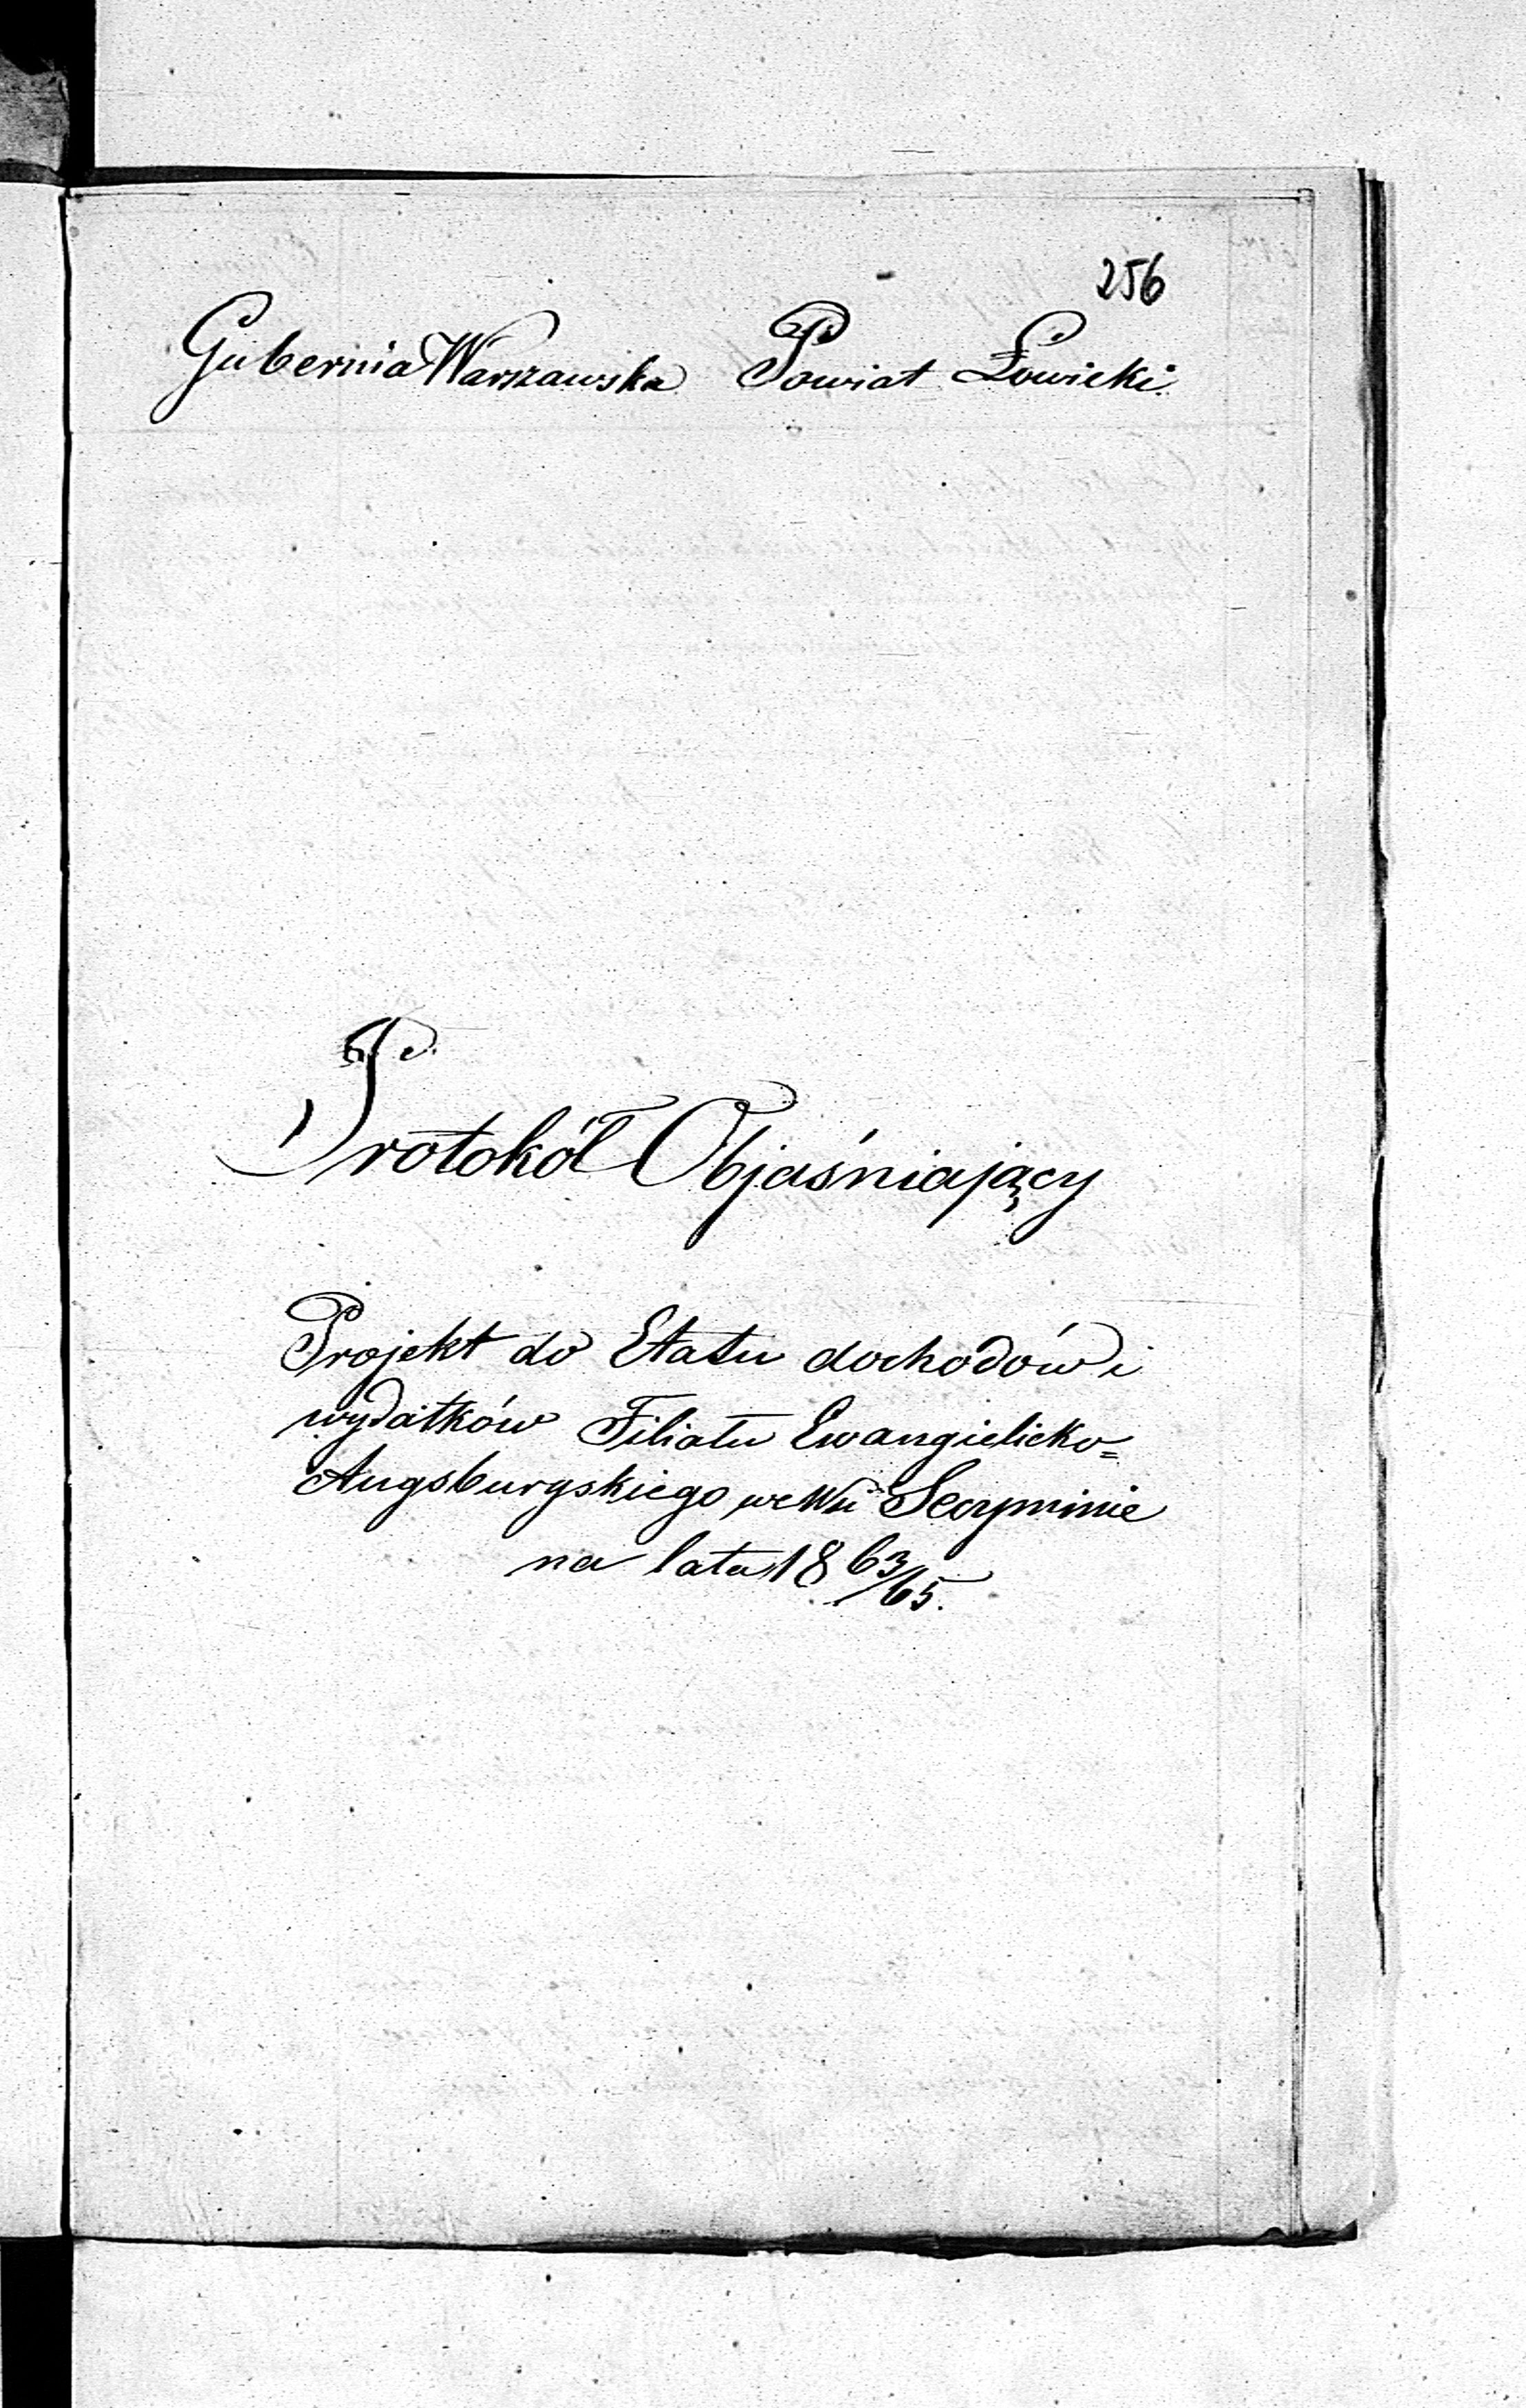 256
Gubernia Warszawska Powiat Łowicki.
Protokół Objaśniający
Projekt do Etatu dochodów i
wydatków Filiału Ewangielicko=
Augsburgskiego we Wsi Secyminie
na lata 18 63/65.